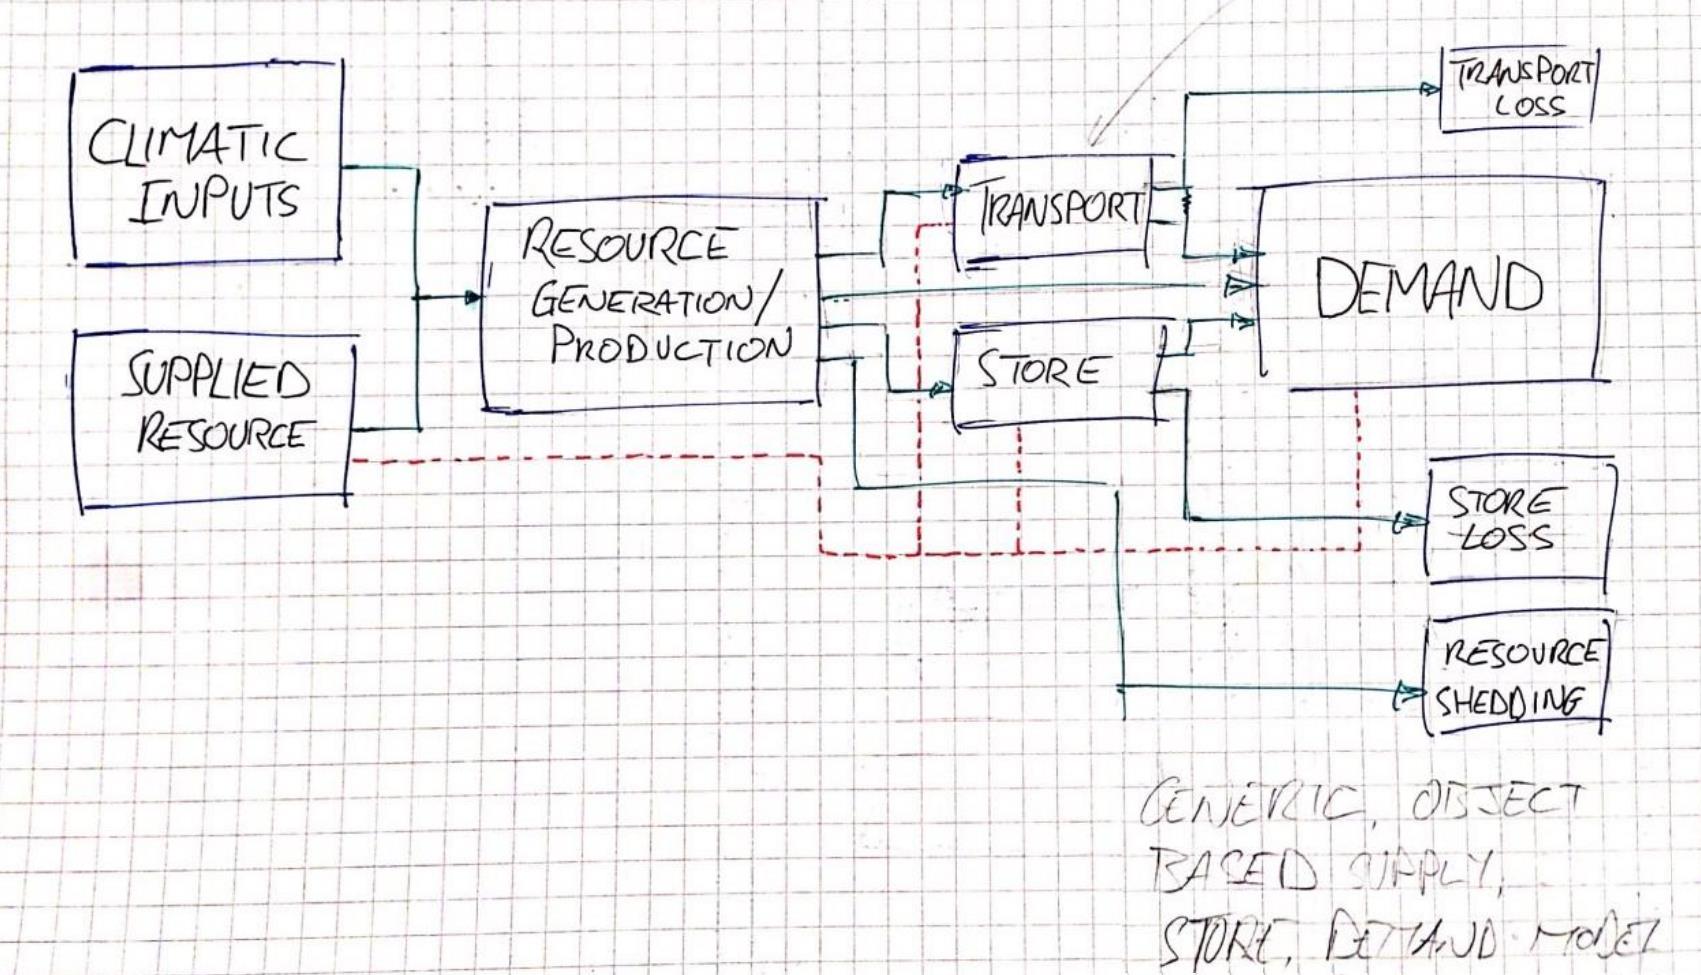 CLIMATIC
INPUTS
SUPPLIED
RESOURCE
RESOURCE
GENERATION/
PRODUCTION
TRANSPORT
STORE
TRANSPORT
LOSS
DEMAND
STORE
LOSS
RESOURCE
SHEDDING
GENERIC, OBJECT
BASED SUPPLY,
STORE, DEMAND MODEL